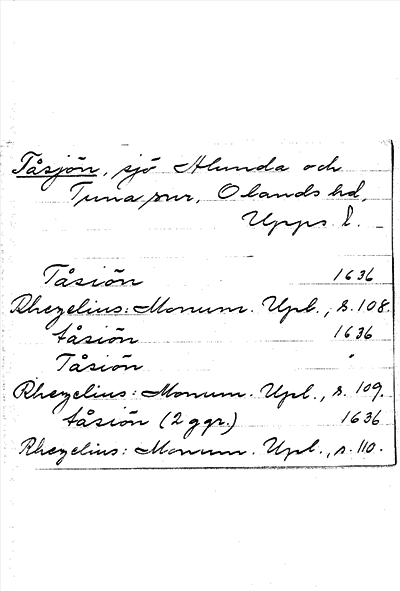 Tåsjön, sjö Alunda och
Tuna snr, Olands hd,
Upps. l.
Tåsiön 1636
Rhezelius: Monum. Upl., s. 108.
tåsiön 1636
Tåsiön "
Rhezelius: Monum. Upl., s. 109.
tåsiön (2 ggr.) 1636
Rhezelius: Monum. Upl., s. 110.